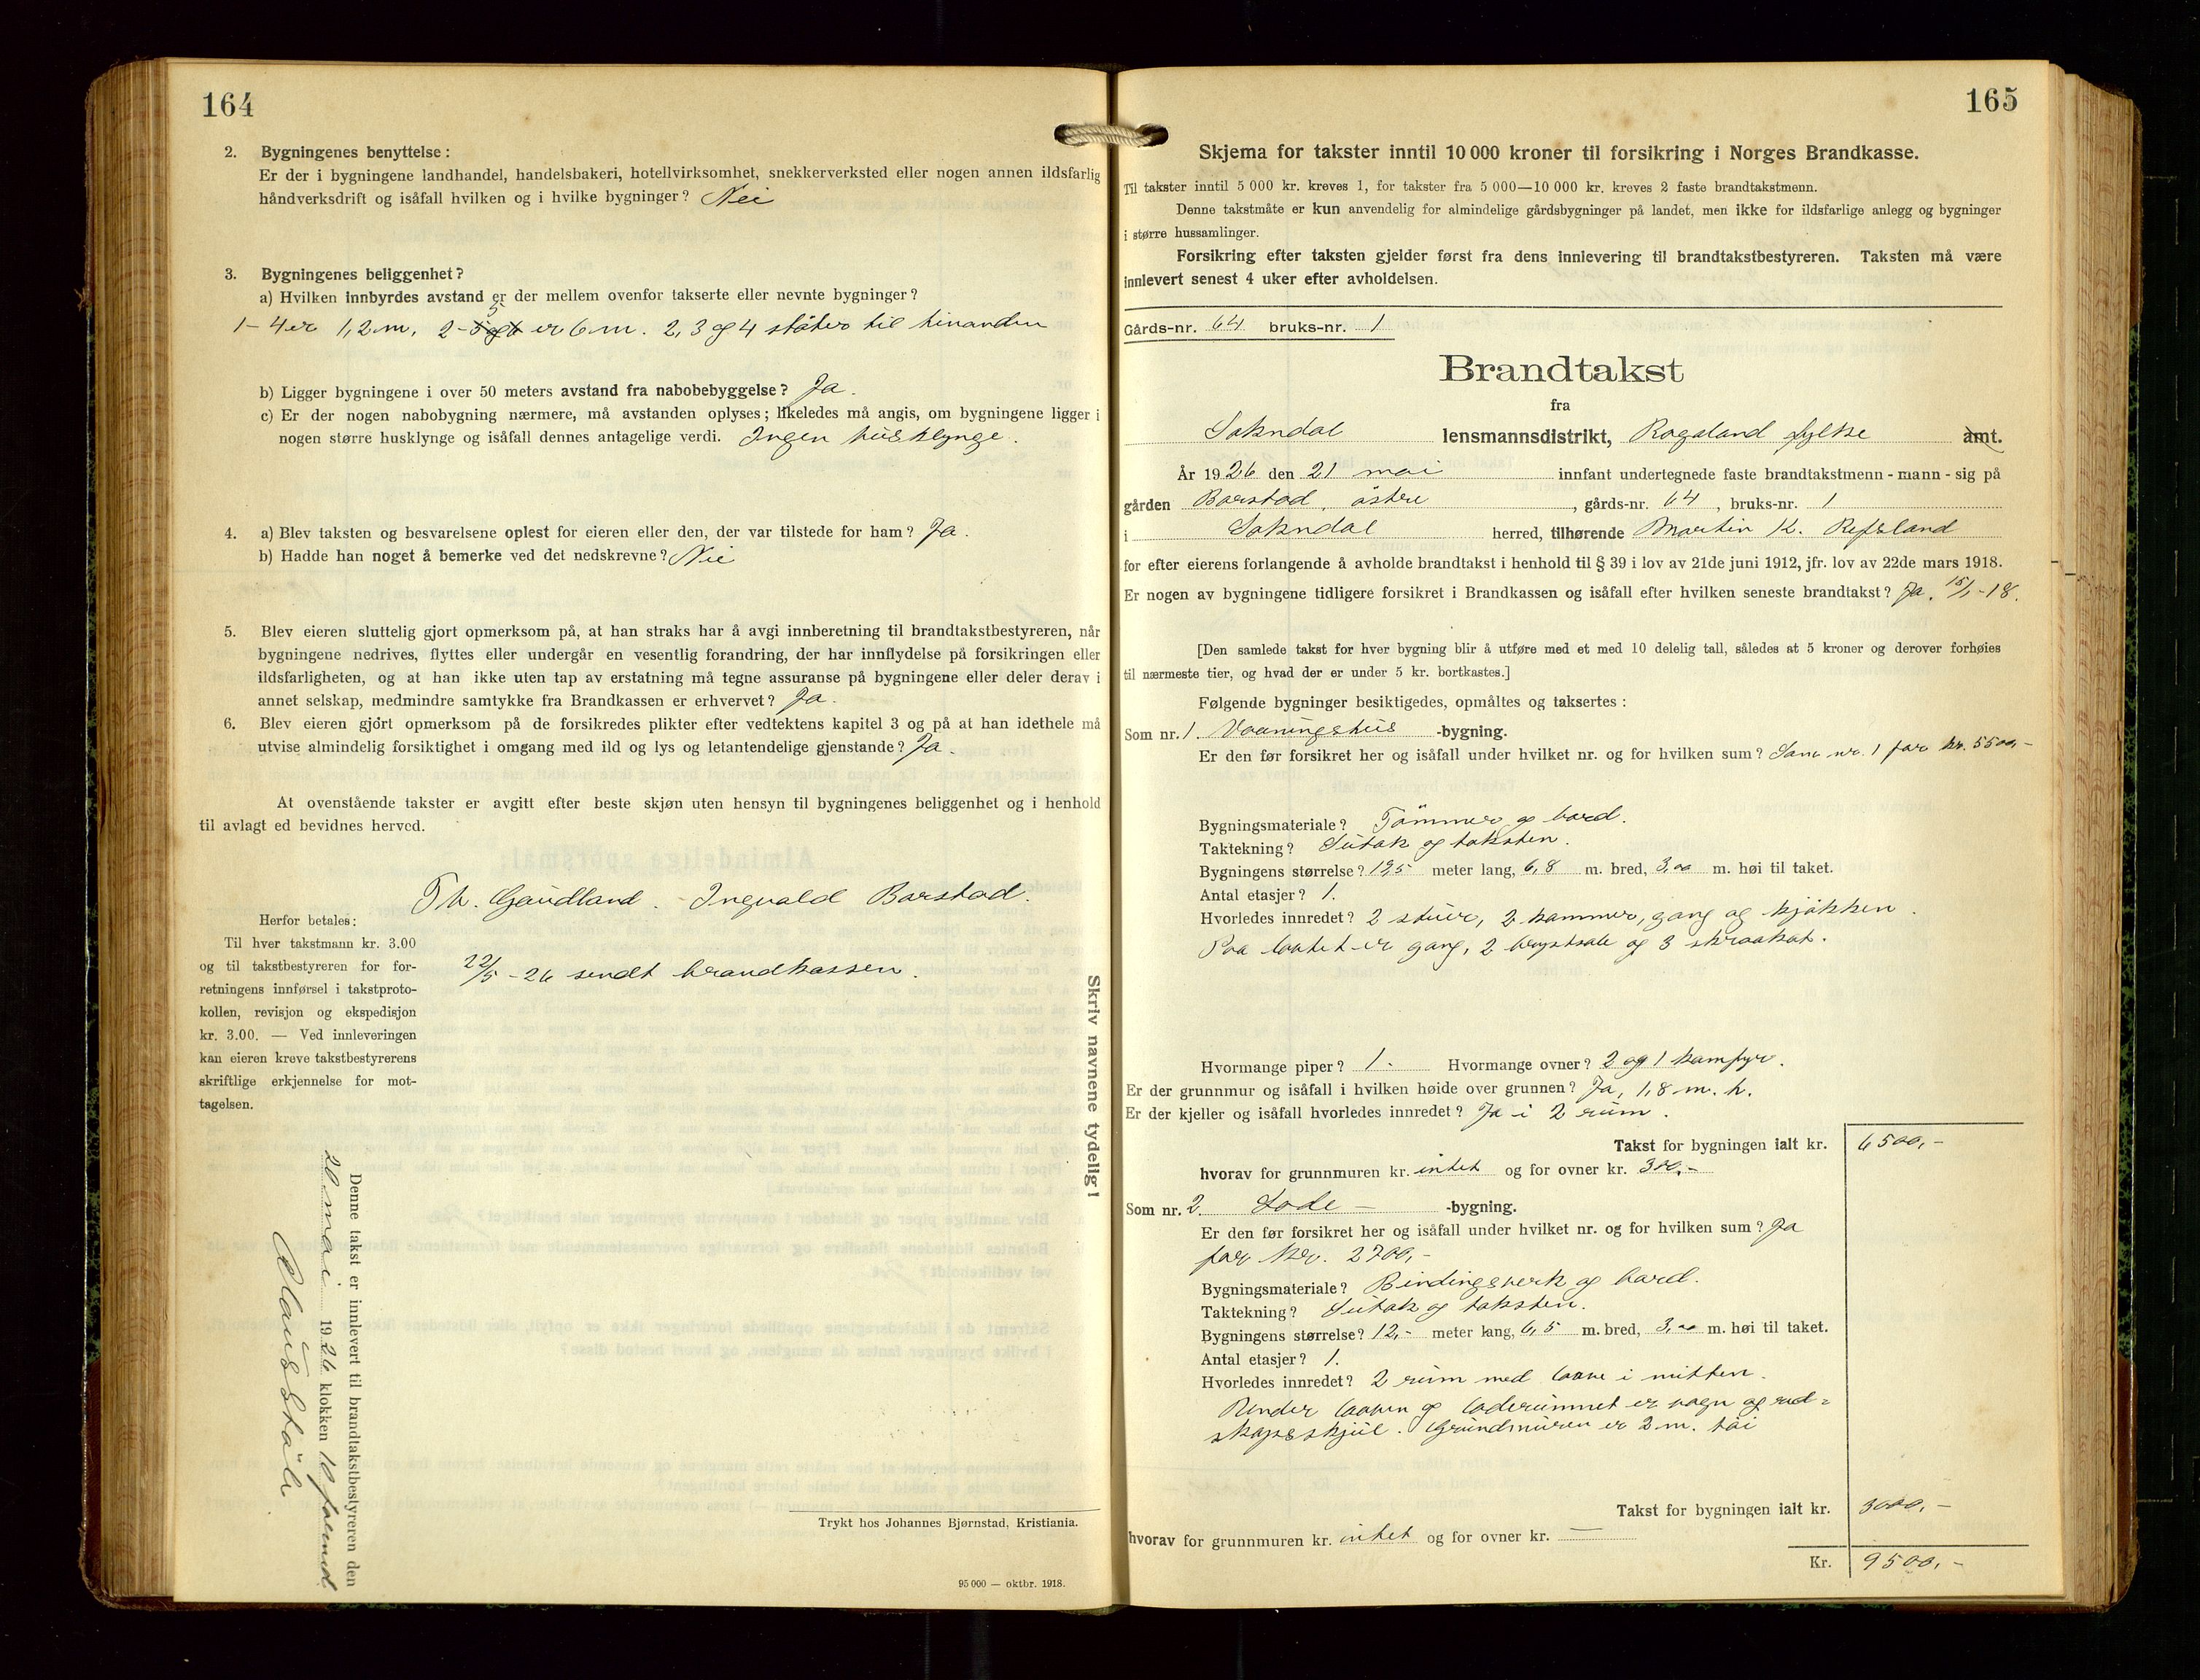 164
2. Bygningenes benyttelse:
Er der i bygningene landhandel, handelsbakeri, hotellvirksomhet, snekkerverksted eller nogen annen ildsfarlig
håndverksdrift og isåfall hvilken og i hvilke bygninger? Nei
3. Bygningenes beliggenhet?
a) Hvilken innbyrdes avstand er der mellem ovenfor takserte eller nevnte bygninger?
1-4 er 1,2 m, 2-5 er 6 m. 2, 3 og 4 støter til hinanden
b) Ligger bygningene i over 50 meters avstand fra nabobebyggelse? Ja.
c) Er der nogen nabobygning nærmere, må avstanden oplyses; likeledes må angis, om bygningene ligger i
nogen større husklynge og isåfall dennes antagelige verdi. Ingen husklynge.
4. a) Blev taksten og besvarelsene oplest for eieren eller den, der var tilstede for ham? Ja.
b) Hadde han noget å bemerke ved det nedskrevne? Nei
5. Blev eieren sluttelig gjort opmerksom på, at han straks har å avgi innberetning til brandtakstbestyreren, når
bygningene nedrives, flyttes eller undergår en vesentlig forandring, der har innflydelse på forsikringen eller
ildsfarligheten, og at han ikke uten tap av erstatning må tegne assuranse på bygningene eller deler derav i
annet selskap, medmindre samtykke fra Brandkassen er erhvervet? Ja.
6. Blev eieren gjort opmerksom på de forsikredes plikter efter vedtektens kapitel 3 og på at han idethele må
utvise almindelig forsiktighet i omgang med ild og lys og letantendelige gjenstande? Ja.
At ovenstående takster er avgitt efter beste skjøn uten hensyn til bygningenes beliggenhet og i henhold
til avlagt ed bevidnes herved.
Th. Gaudland. Ingvald Barstad.
22/5-26 sendt brandkassen.
Herfor betales:
Til hver takstmann kr. 3.00
og til takstbestyreren for for-
retningens innførsel i takstproto-
kollen, revisjon og ekspedisjon
kr. 3.00. — Ved innleveringen
kan eieren kreve takstbestyrerens
skriftlige erkjennelse for mot-
tagelsen.
Skriv navnene tydelig!
Denne takst er innlevert til brandtakstbestyreren den
26 mai 1926 klokken 10 formd
Trykt hos Johannes Bjørnstad, Kristiania.
95 000 — oktbr. 1918.
165
Skjema for takster inntil 10 000 kroner til forsikring i Norges Brandkasse.
Til takster inntil 5 000 kr. kreves 1, for takster fra 5 000—10 000 kr. kreves 2 faste brandtakstmenn.
Denne takstmåte er kun anvendelig for almindelige gårdsbygninger på landet, men ikke for ildsfarlige anlegg og bygninger
i større hussamlinger.
Forsikring efter taksten gjelder først fra dens innlevering til brandtakstbestyreren. Taksten må være
innlevert senest 4 uker efter avholdelsen.
Gårds-nr. 64 bruks-nr. 1
Brandtakst
fra
Sokndal lensmannsdistrikt, Rogaland fylke amt.
År 1926 den 21 mai innfant undertegnede faste brandtakstmenn - mann - sig på
gården Barstad, østre, gårds-nr. 64, bruks-nr. 1
i Sokndal herred, tilhørende Martin K. Refsland
for efter eierens forlangende å avholde brandtakst i henhold til § 39 i lov av 21de juni 1912, jfr. lov av 22de mars 1918.
Er nogen av bygningene tidligere forsikret i Brandkassen og isåfall efter hvilken seneste brandtakst? Ja. 15/1-18.
[Den samlede takst for hver bygning blir å utføre med et med 10 delelig tall, således at 5 kroner og derover forhøies
til nærmeste tier, og hvad der er under 5 kr. bortkastes.]
Følgende bygninger besiktigedes, opmåltes og taksertes:
Som nr. 1. Vaaningshus -bygning.
Er den før forsikret her og isåfall under hvilket nr. og for hvilken sum? Som nr. 1 for kr. 5500,-
Bygningsmateriale? Tömmer og bord.
Taktekning? Sutak og taksten.
Bygningens størrelse? 13,5 meter lang, 6,8 m. bred, 3,00 m. høi til taket.
Antal etasjer? 1.
Hvorledes innredet? 2 stuer, 2 kammer, gang og kjøkken.
Paa loftet er gang, 2 kvistsale og 3 skraakot.
Hvormange piper? 1. Hvormange ovner? 2 og 1 komfyr.
Er der grunnmur og isåfall i hvilken høide over grunnen? Ja, 1,8 m. h.
Er der kjeller og isåfall hvorledes innredet? Ja i 2 rum.
Takst for bygningen ialt kr. 6500,-
hvorav for grunnmuren kr. intet og for ovner kr. 300,-
Som nr. 2. Lode — -bygning.
Er den før forsikret her og isåfall under hvilket nr. og for hvilken sum? Ja
for kr. 2700,-
Bygningsmateriale? Bindingsverk og bord.
Taktekning? Sutak og taksten.
Bygningens størrelse? 12,- meter lang, 6,5 m. bred, 3,00 m. høi til taket.
Antal etasjer? 1.
Hvorledes innredet? 2 rum med laave i mitten.
Under laaven og loderummet er vogn og red=
skapsskjul. Grundmuren er 2 m. høi
Takst for bygningen ialt kr. 3000,-
hvorav for grunnmuren kr. intet og for ovner kr. —
Kr. 9500,-